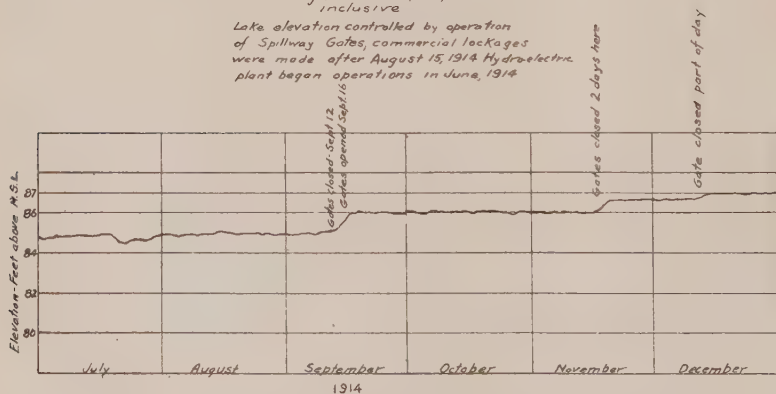 inclusive
Lake elevation controlled by operation
of Spillway Gates, commercial lockages
were made after August 15, 1914 Hydroelectric
plant began operations in June, 1914
Gates closed-Sept. 12
Gates opened Sept. 16
Gates closed 2 days here
Gate closed part of day
Elevation-Feet above M.S.L.
87
86
84
82
80
July August September October November December
1914